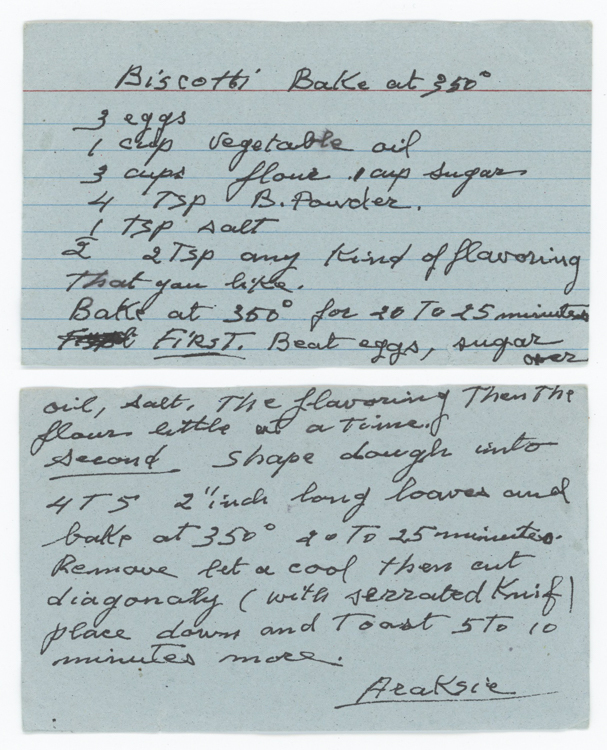 Biscotti Bake at 350°
3 eggs
1 cup vegetable oil
3 cups flour . 1 cup sugar
4 Tsp B. Powder.
1 Tsp salt
2 2 Tsp any Kind of flavoring
That you like.
Bake at 350° for 20 To 25 minutes
FIRST. Beat eggs, sugar
over
oil, salt, The flavoring Then The
flour little at a time.
Second Shape dough into
4 T 5 2" inch long loaves and
bake at 350° 20 To 25 minutes.
Remove let a cool then cut
diagonaly (with serrated Knif)
place down and Toast 5 To 10
minutes more.
Araksie